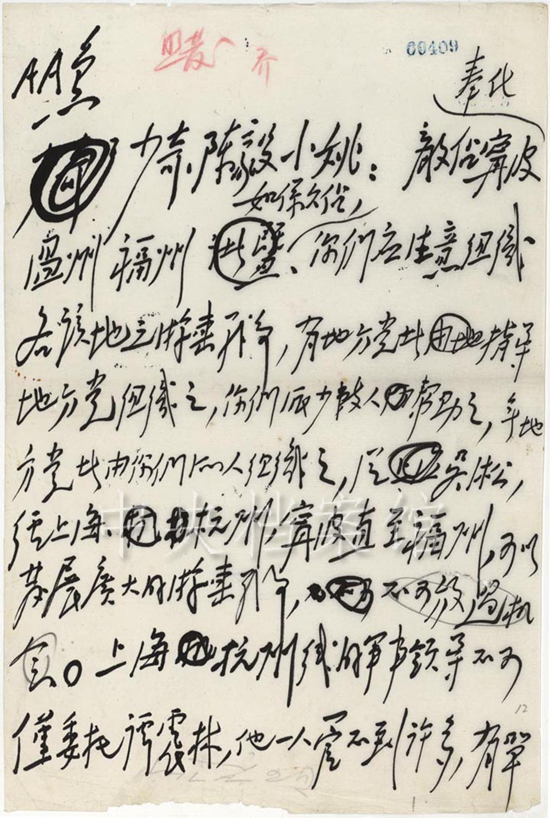 60409
AA急
奉化
少奇、陈毅小姚：敌占宁波
如系久占，
温州福州 你们应注意组织
各该地之游击战争，有地方党者由
地方党组织之，你们派少数人帮助之，无地
方党者由你们派人组织之，从吴淞，
经上海、杭州，宁波直至福州，可以
发展广大的游击战争，不可放过机
会。上海杭州线的军事领导不可
仅委托谭震林，他一人管不到许多，有单
12
中央档案馆